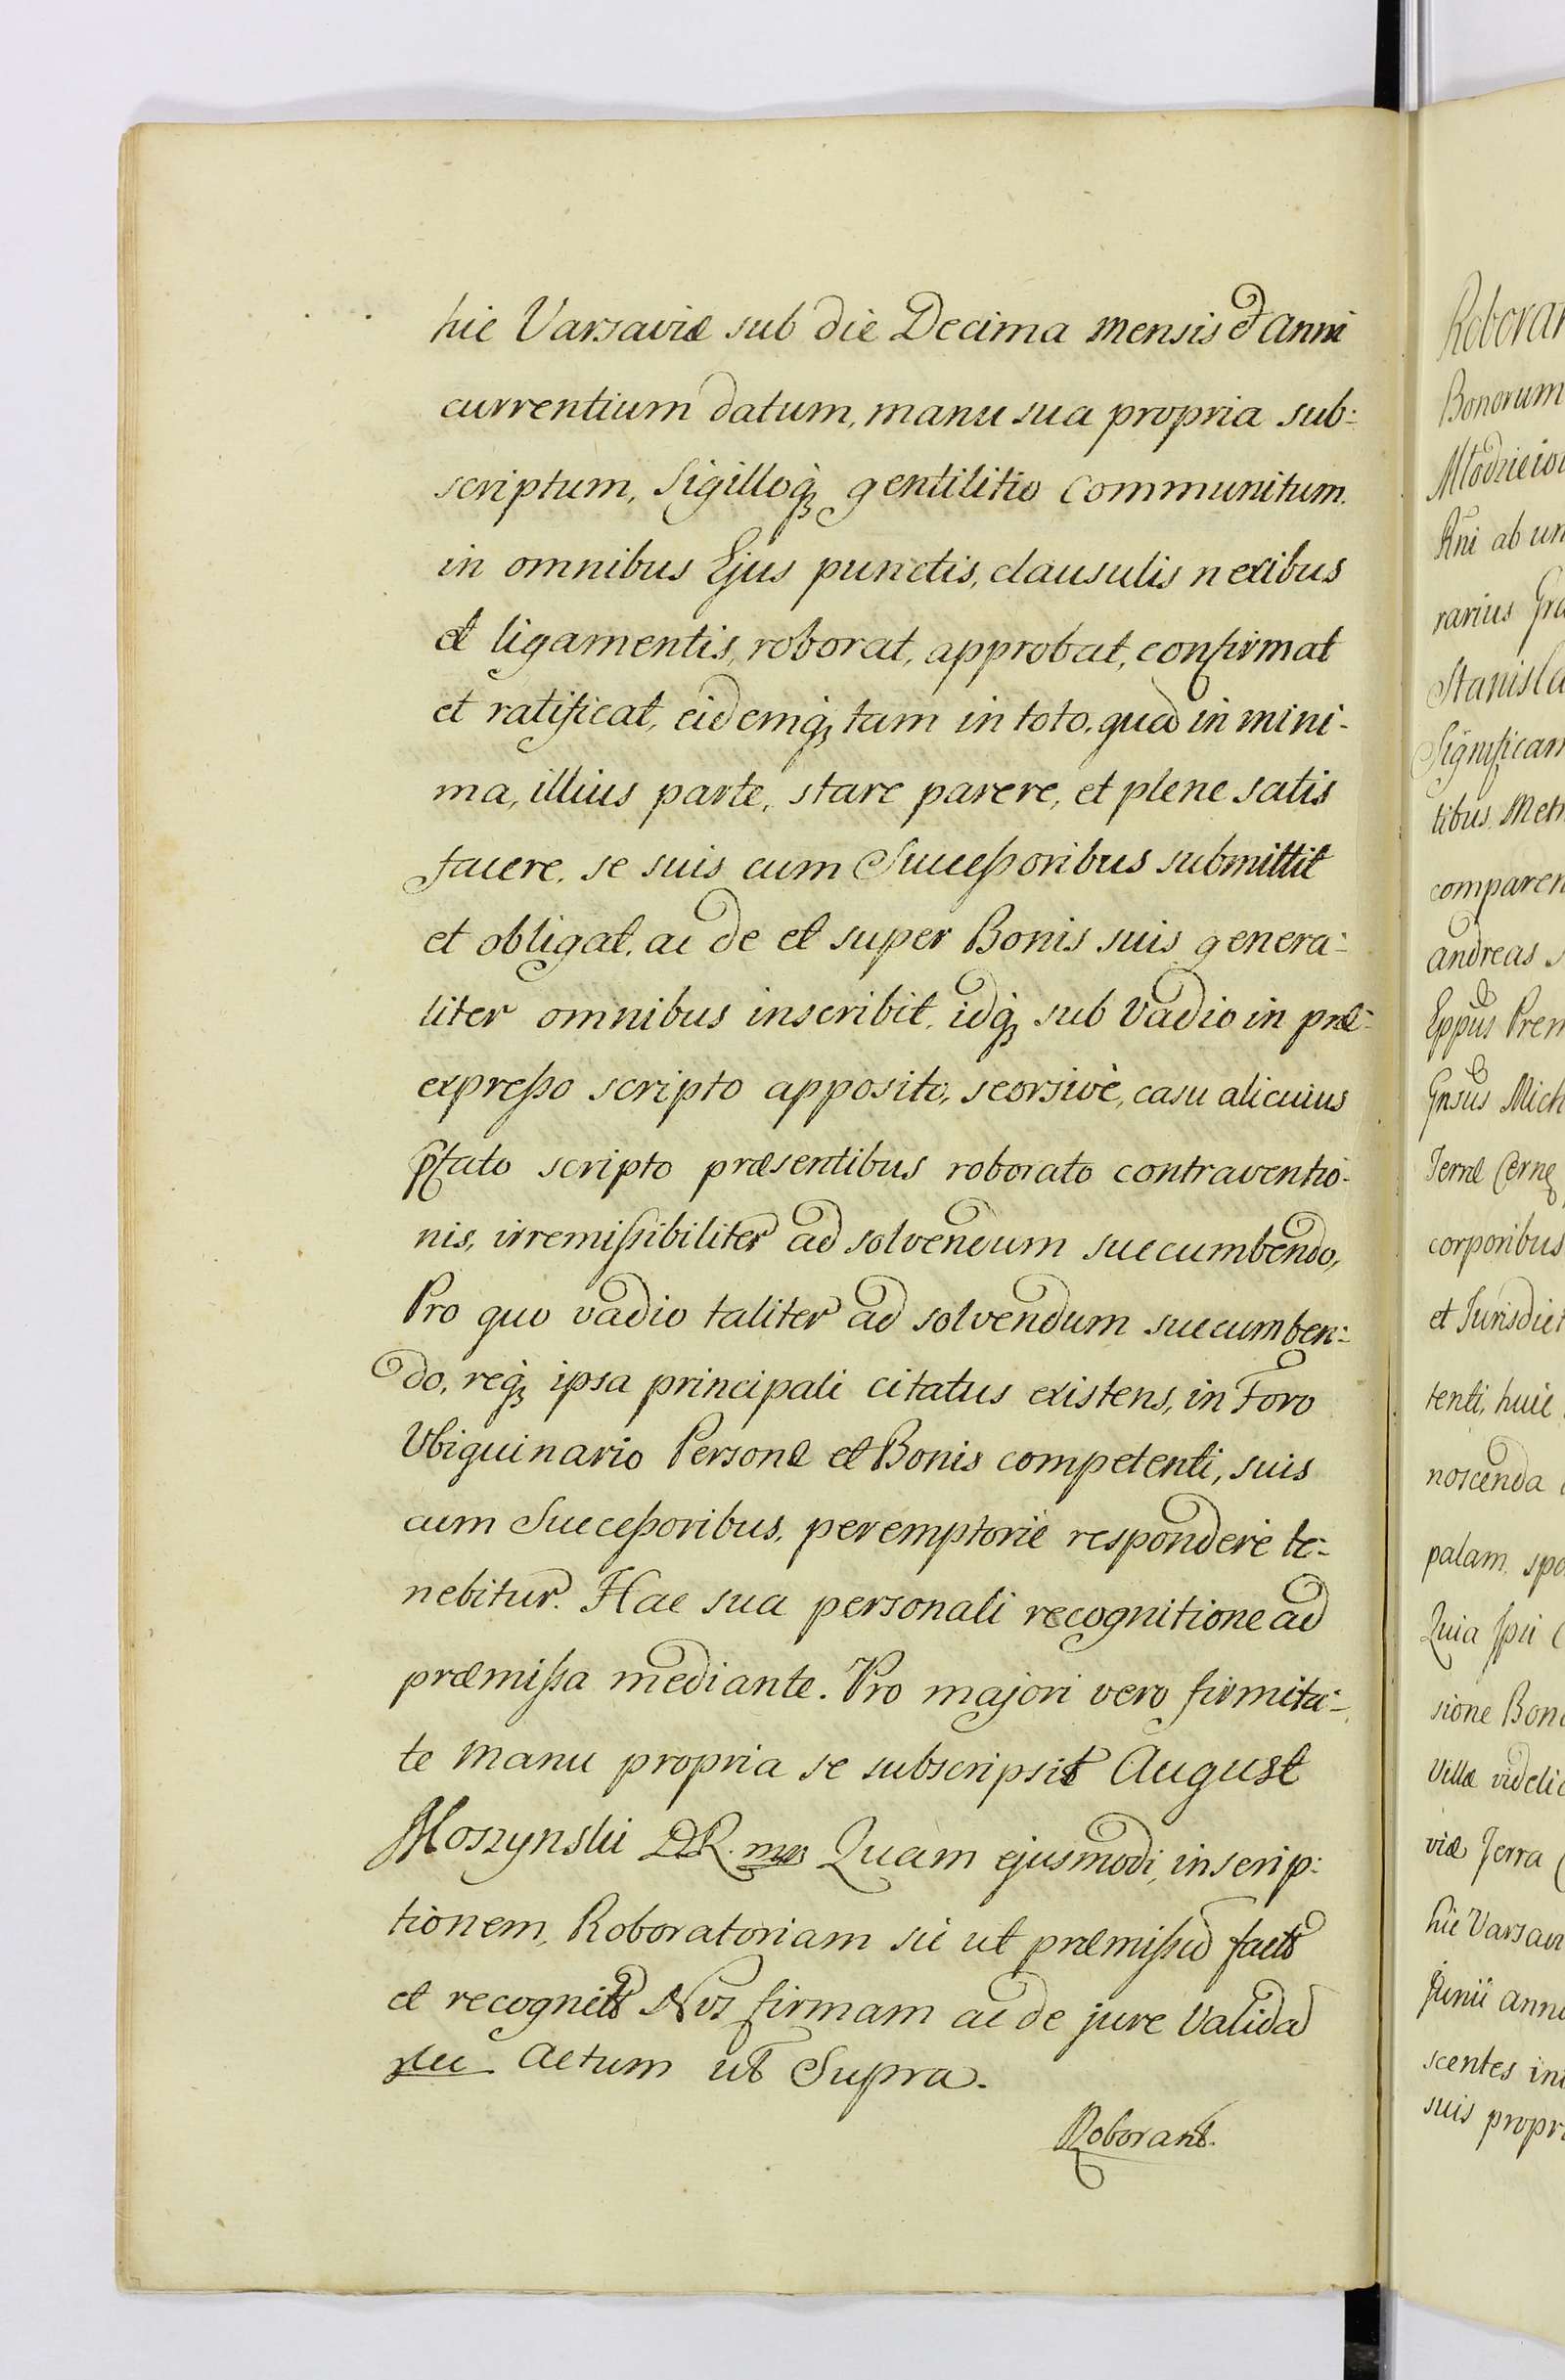 hic Varsaviæ sub die Decima mensis et anni
currentium datum, manu sua propria sub:
scriptum, Sigilloq̨ gentilitio communitum.
in omnibus Ejus punctis, clausulis nexibus
et ligamentis, roborat, approbat, confirmat
et ratificat, eidemq̨ tam in toto, qua in mini-
ma, illius parte, stare parere, et plene satis
facere, se suis cum Successoribus submittit
et obligat, ac de et super Bonis suis genera:
liter omnibus inscribit, idq̨ sub Vadio in præ:
expresso scripto apposito, seorsivè, casu alicuius
ptato scripto præsentibus roborato contraventio-
nis, irremissibiliter ad solvendum succumbendo,
Pro quo vadio taliter ad solvendum succumben:
do, req̨ ipsa principali citatus existens, in Foro
Ubiquinario Personæ et Bonis competenti, suis
cum Successoribus, peremptorie respondere te:
nebitur. Hac sua personali recognitione ad
præmissa mediante. Pro majori vero firmita-
te manu propria se subscripsit August
Moszynski DR. mp Quam ejusmodi, inscrip:
tionem, Roboratoriam sic ut præmissu fact
et recognit Nos firmam ac de jure Valida
Actum ut Supra.
Roborant.
Roborat
Bonorum
Młodzieio
Rni ab un
rarius Gra
Stanisla
Significan
tibus Metr
comparen
Andreas
Eppus Prem
Gnsus Mich
Terræ Cerne
corporibus
et Jurisdict
tenti, huic
noscenda
palam, spo
Quia Ipsi
sione Bono
Villæ videlic
viæ Terra
hic Varsavi
Junii anni
scentes in
suis propri